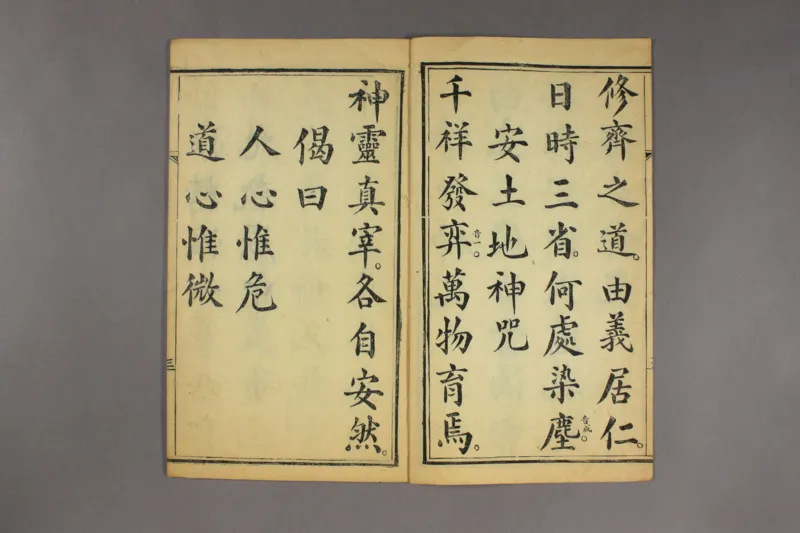 修齊之道。由義居仁。
日時三省。何處染塵。
安土地神咒
千祥發弈音一。萬物育焉。
神靈真宰。各自安然。
偈曰
人心惟危
道心惟微
三